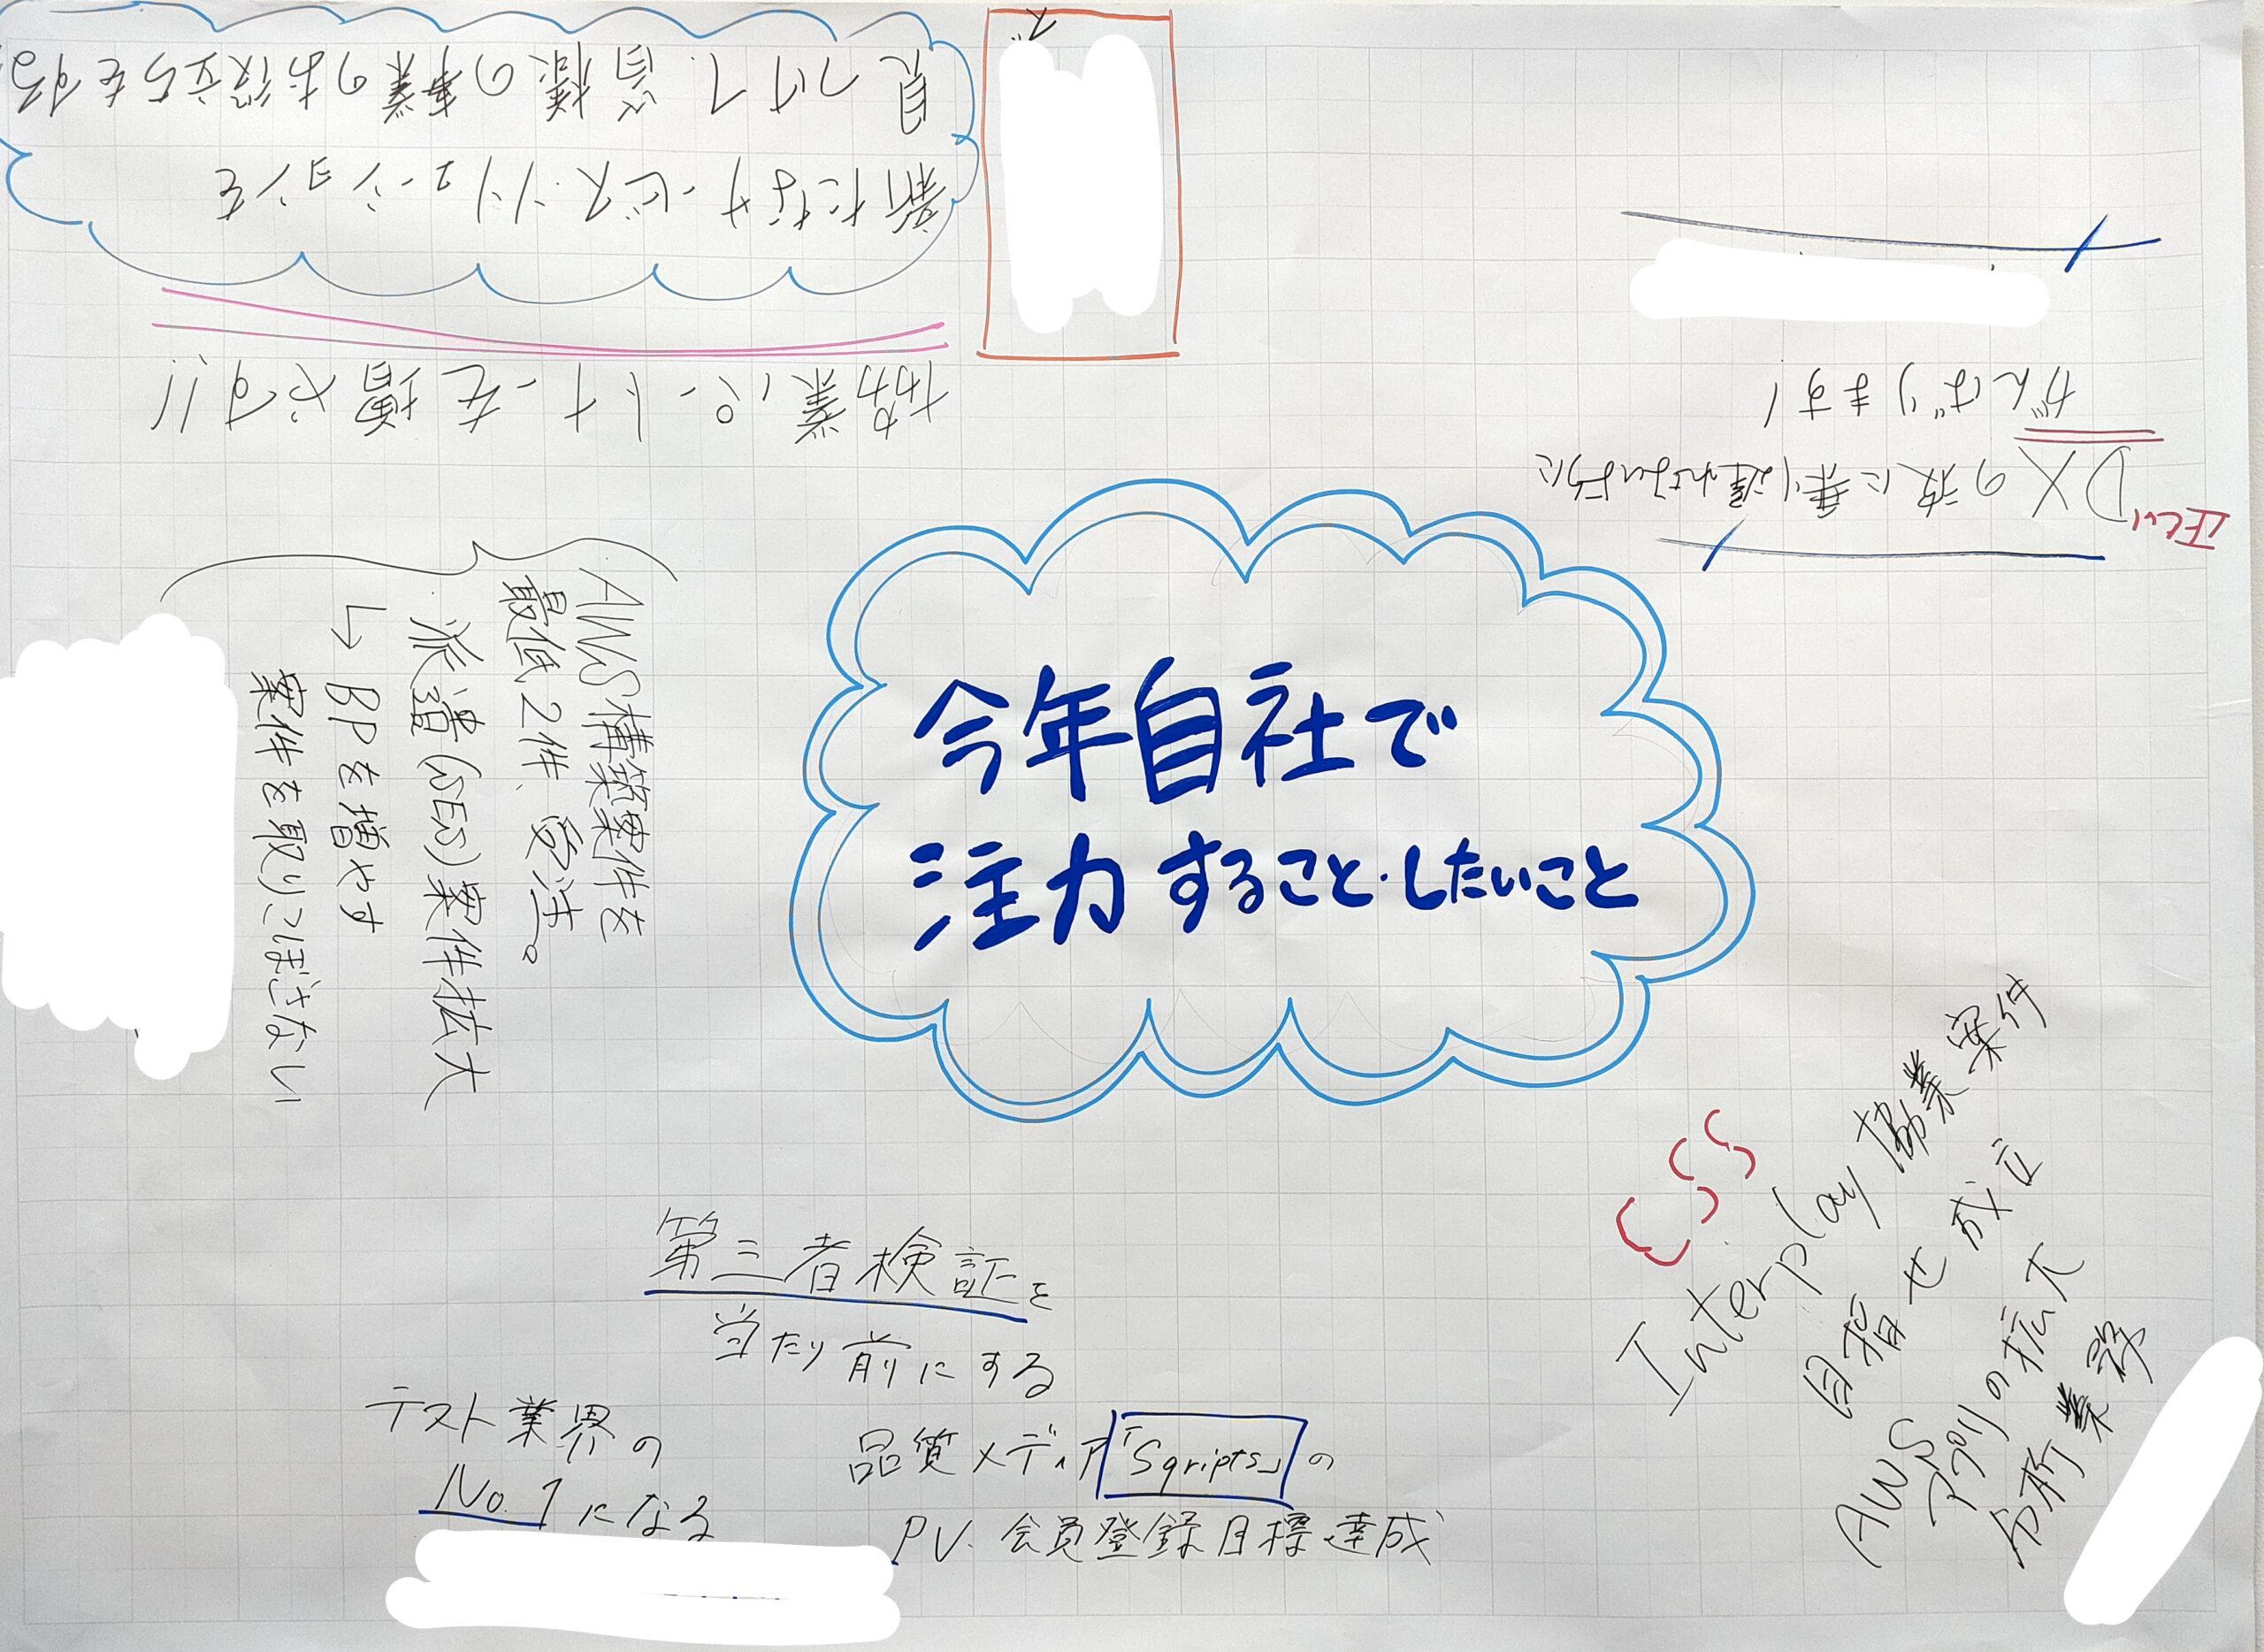 今年自社で
注力すること・したいこと
協業パートナーを増やす!!
新たなサービス・ソリューションを
見つけて、皆様の事業のお役立ちをする
正しい
DXの波に乗り遅れないように
がんばります!
AWS構築案件を
最低2件、受注。
派遣(SES)案件拡大
↳BPを増やす
案件を取りこぼさない
第三者検証を
当たり前にする
テスト業界の
No.1になる
品質メディア「Sqripts」の
PV、会員登録目標達成
CSS
Interplay協業案件
目指せ成立
AWS
アプリの拡大
分析業務